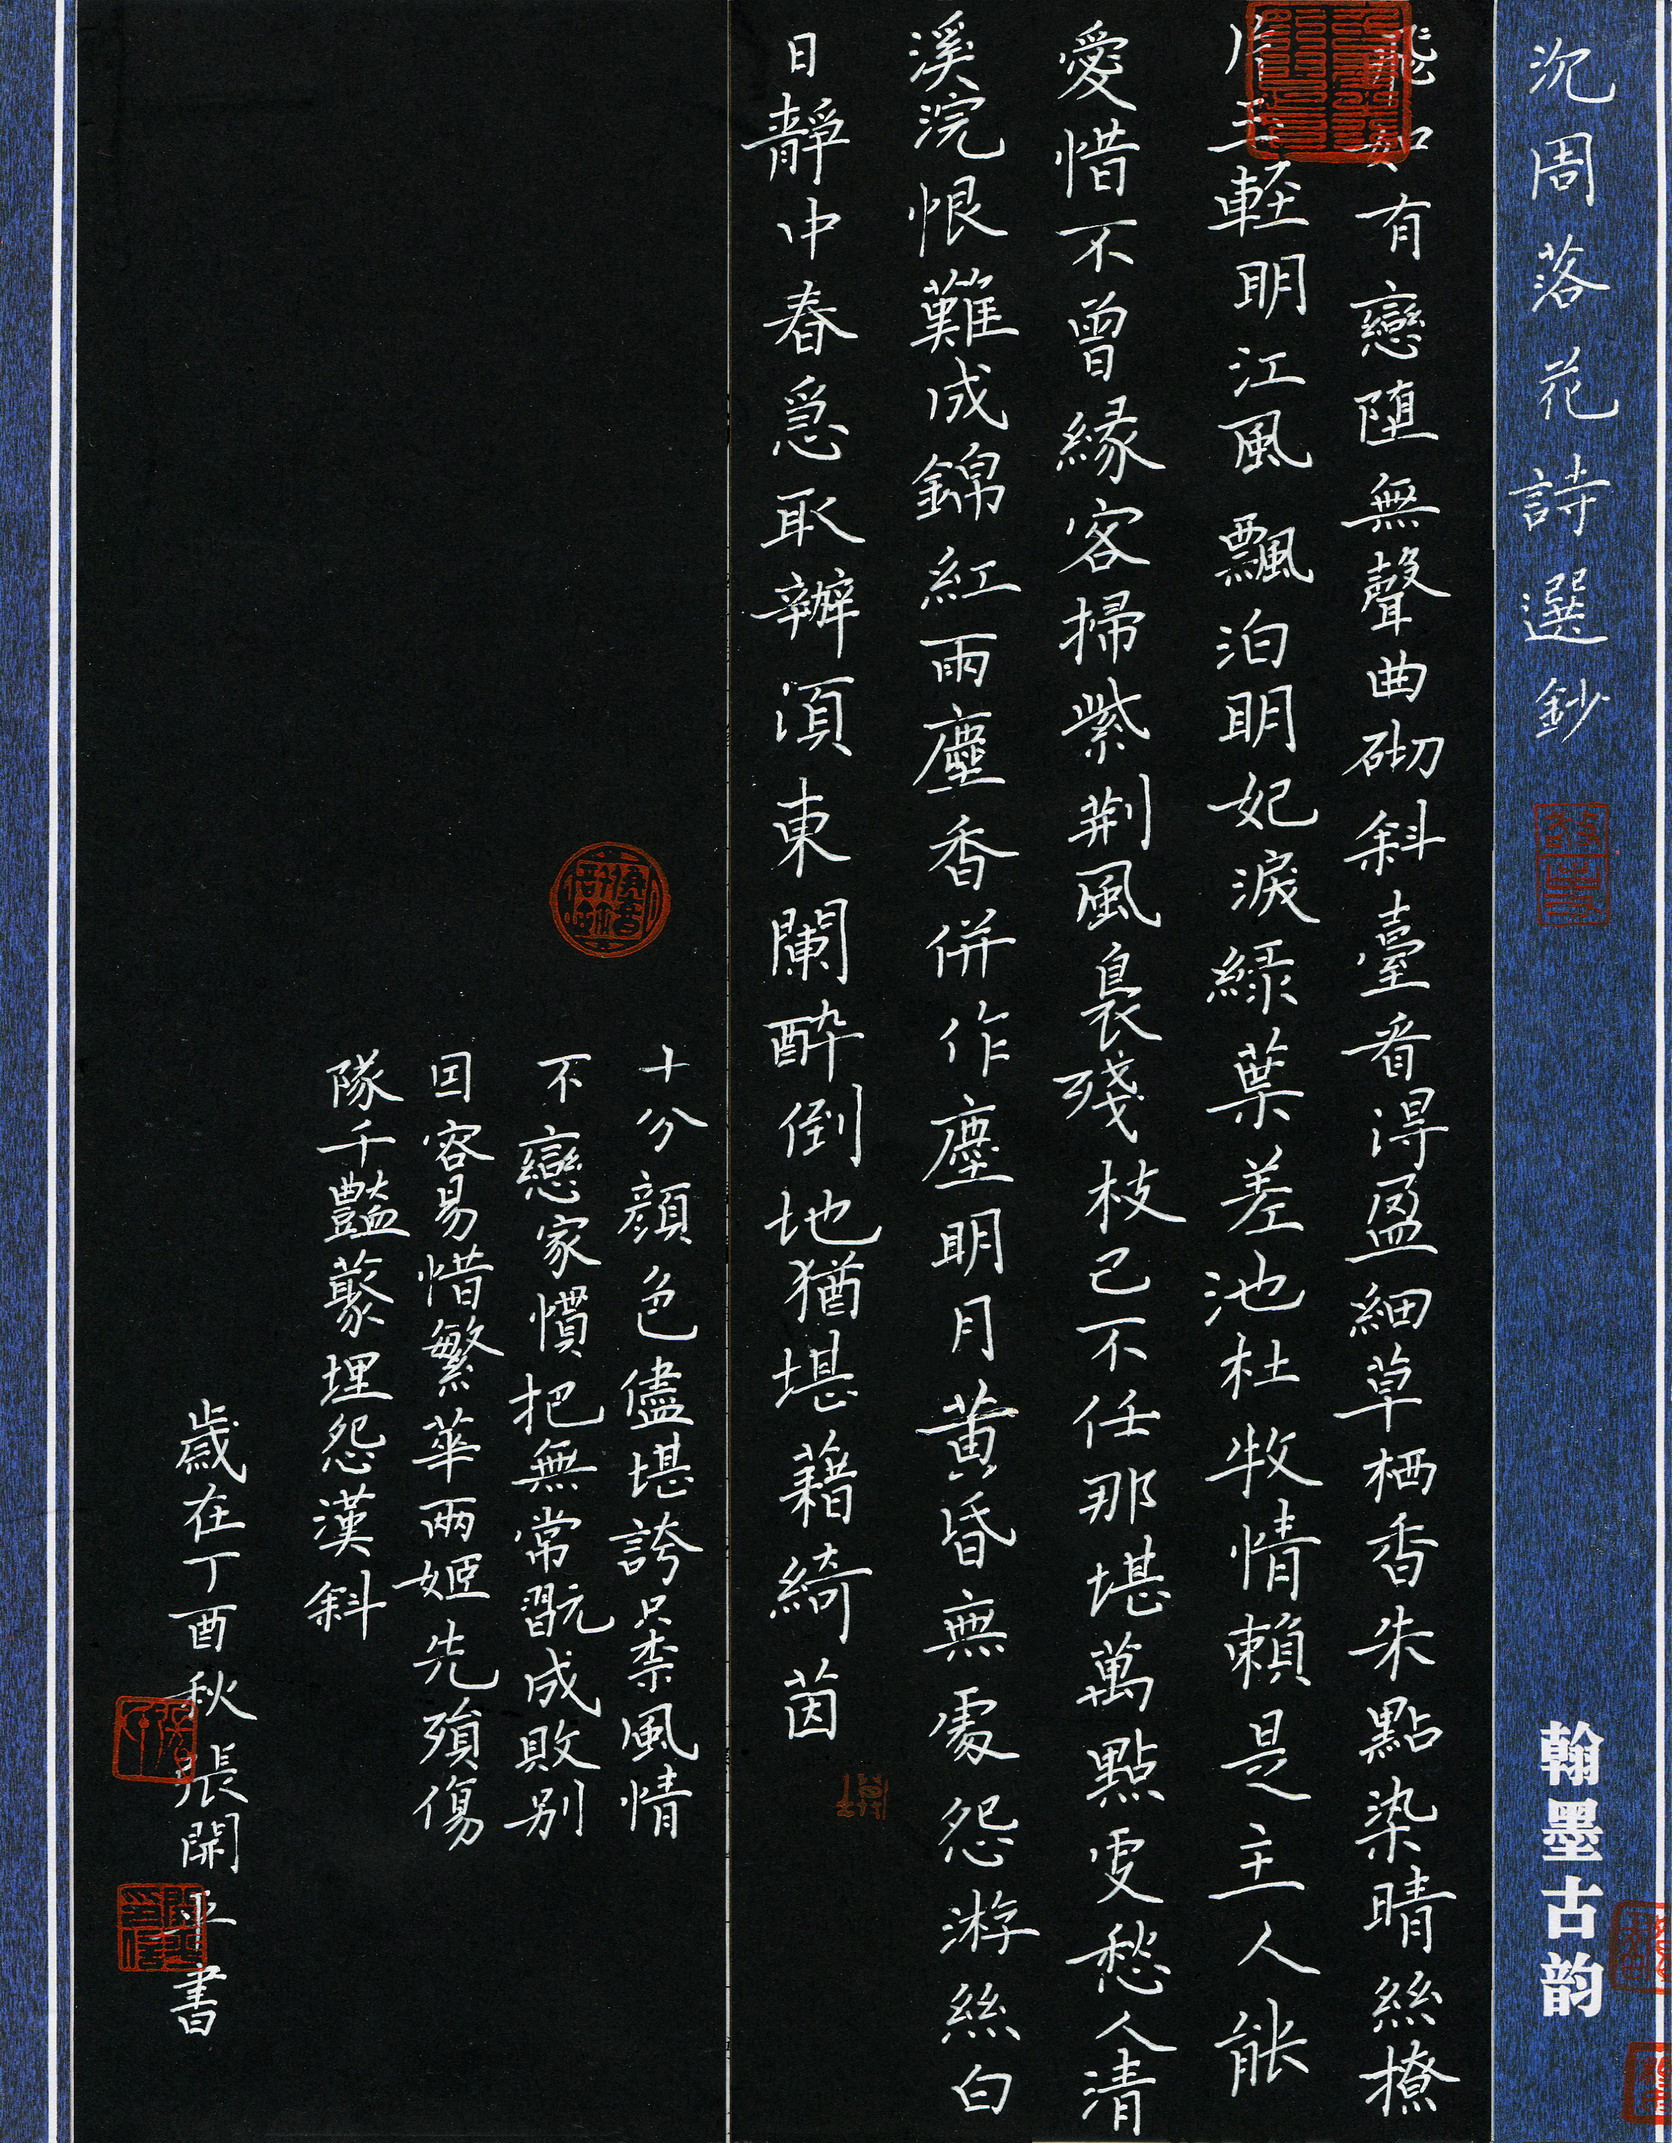 沉周落花詩選鈔
翰墨古韵
飛如有戀墮無聲曲砌斜臺看得盈細草栖香朱點染晴絲撩
片玉輕明江風飄泊明妃淚綠葉差池杜牧情賴是主人能
愛惜不曾緣客掃紫荆風裊殘枝已不任那堪萬點更愁人清
溪浣恨難成錦紅雨塵香併作塵明月黄昏無處怨游絲白
日靜中春急取辦湏東闌醉倒地猶堪藉綺茵
十分顔色儘堪誇只柰風情
不戀家慣把無常翫成敗别
囙容易惜繁華兩姬先殞傷
隊千豔蘂埋怨漢斜
歲在丁酉秋張開平書